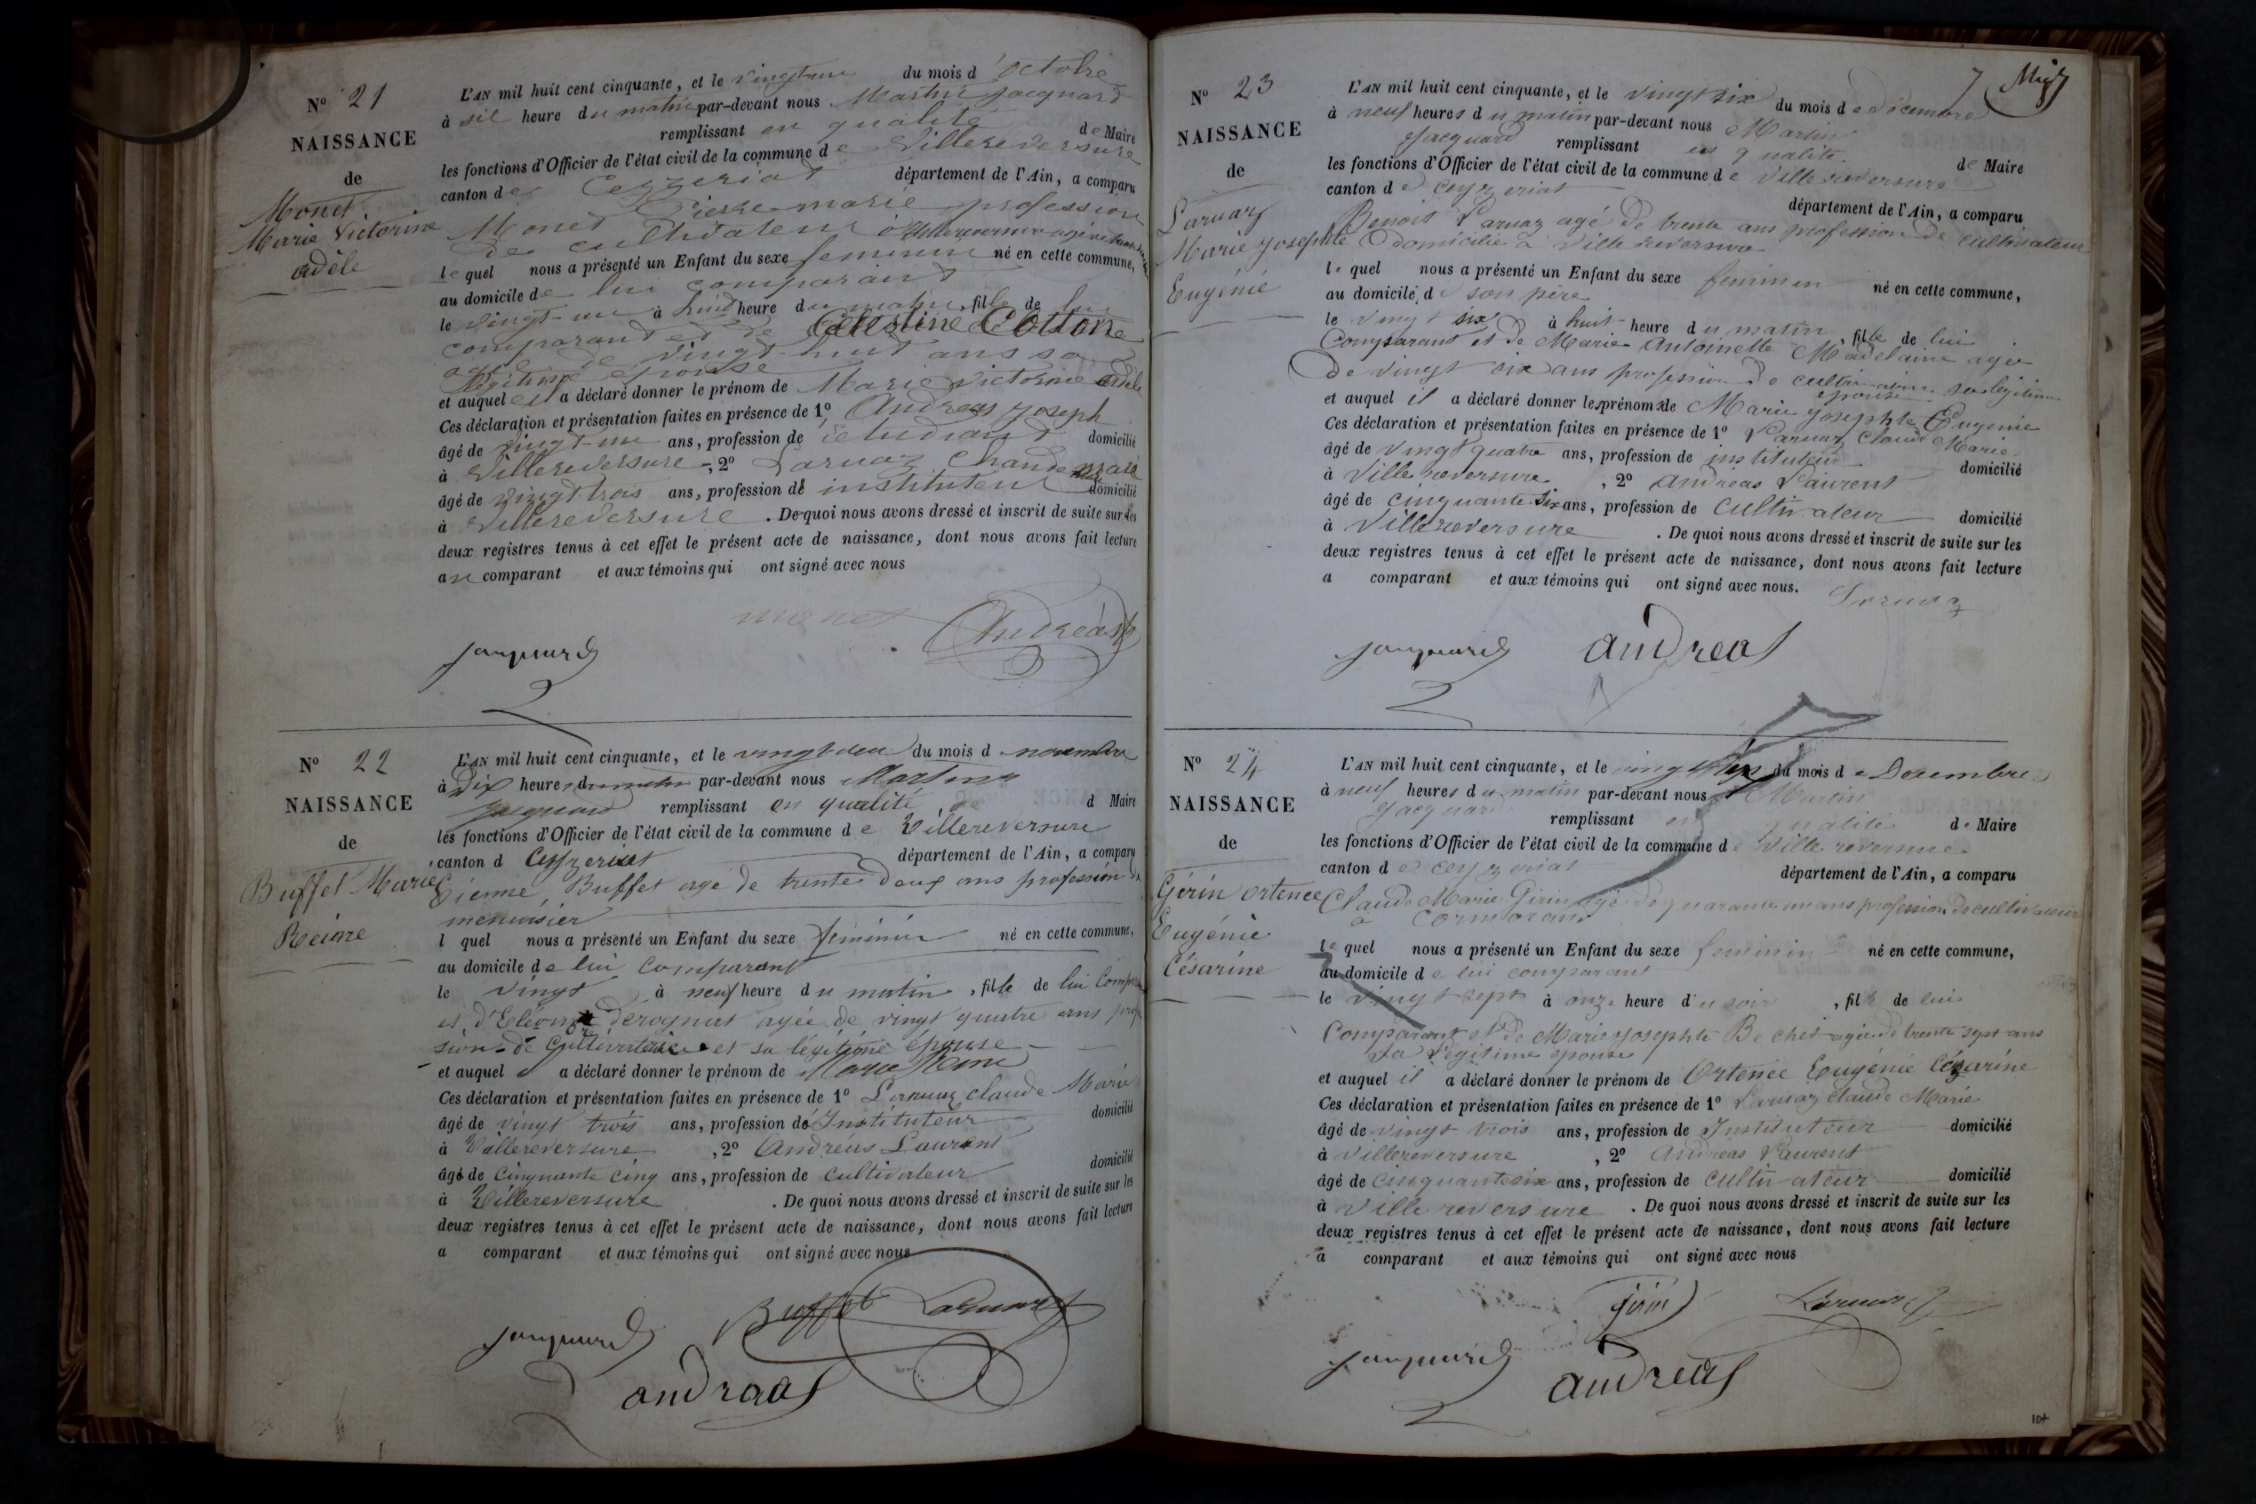 N° 21
NAISSANCE
de
Monet
Marie Victorine
adèle
L'AN mil huit cent cinquante, et le vingt-un du mois d'octobre
à heure du matin par-devant nous Martin Jacquard
remplissant en qualité de Maire
les fonctions d'Officier de l'état civil de la commune de Villereversure
canton de Ceyzeriat département de l'Ain, a comparu
Monet Pierre marie profession
de cultivateur à Villereversure
lequel nous a présenté un Enfant du sexe feminin né en cette commune,
au domicile de lui comparant
le vingt-un à huit heure du matin, fille de lui
comparant et de Célestine Cottone
de vingt-huit ans sa
légitime épouse
et auquel il a déclaré donner le prénom de Marie Victorine adèle
Ces déclaration et présentation faites en présence de 1° Andreas Joseph
âgé de vingt-un ans, profession de étudiant domicilié
à Villereversure, 2° Laruaz Claude marie
âgé de vingt trois ans, profession de instituteur domicilié
à Villereversure. De quoi nous avons dressé et inscrit de suite sur les
deux registres tenus à cet effet le présent acte de naissance, dont nous avons fait lecture
au comparant et aux témoins qui ont signé avec nous
monet Andréas
jaquard
N° 22
NAISSANCE
de
Buffet Marie
Reine
L'AN mil huit cent cinquante, et le vingt deux du mois d novembre
à Dix heures du matin par-devant nous Martin
Jacquard remplissant en qualité de d Maire
les fonctions d'Officier de l'état civil de la commune de Villereversure
canton d Ceyzeriat département de l'Ain, a comparu
Buffet age de trente deux ans profession de
menuisier
l quel nous a présenté un Enfant du sexe féminin né en cette commune,
au domicile de lui comparant
le vingt à neuf heure du matin, fille de lui
et d'Eléonore derognat agée de vingt quatre ans
sion de et sa légitime épouse
et auquel a déclaré donner le prénom de Marie Reine
Ces déclaration et présentation faites en présence de 1° Laruaz claude Marie
âgé de vingt trois ans, profession de Instituteur domicilié
à Villereversure, 2° Andréas Laurent
âgé de cinquante cinq ans, profession de cultivateur domicilié
à Villereversure. De quoi nous avons dressé et inscrit de suite sur les
deux registres tenus à cet effet le présent acte de naissance, dont nous avons fait lecture
a comparant et aux témoins qui ont signé avec nous
Buffet Laruaz
jaquard
andreas
N° 23
NAISSANCE
de
Laruaz
Marie Josephte
Eugénie
L'AN mil huit cent cinquante, et le vingt six du mois de Décembre
à neuf heures du matin par-devant nous Martin
Jacquard remplissant en qualité de Maire
les fonctions d'Officier de l'état civil de la commune de Villereversure
canton de ceyzeriat département de l'Ain, a comparu
Benoit Laruaz agé de trente ans profession de cultivateur
domicilié à Villereversure
lequel nous a présenté un Enfant du sexe feminin né en cette commune,
au domicile de son père
le vingt six à huit heure du matin, fille de lui
Comparant et de Marie Antoinette Madelaine agée
De vingt six ans profession de cultivateur sa légitime
épouse
et auquel il a déclaré donner les prénoms de Marie Josephte Eugénie
Ces déclaration et présentation faites en présence de 1° Laruaz Claude Marie
âgé de vingt quatre ans, profession de instituteur domicilié
à Villereversure, 2° andreas Laurent
âgé de cinquante six ans, profession de cultivateur domicilié
à Villereversure. De quoi nous avons dressé et inscrit de suite sur les
deux registres tenus à cet effet le présent acte de naissance, dont nous avons fait lecture
a comparant et aux témoins qui ont signé avec nous.
Laruaz
jaquard andreas
N° 24
NAISSANCE
de
Gérin Ortence
Eugénie
Césarine
L'AN mil huit cent cinquante, et le vingt du mois de Decembre
à neuf heures du matin par-devant nous Martin
Jacquard remplissant en qualité de Maire
les fonctions d'Officier de l'état civil de la commune de Villereversure
canton de ceyzeriat département de l'Ain, a comparu
Claude Marie Girin agé de quarante un ans profession De cultivateur
à Cormoran
lequel nous a présenté un Enfant du sexe feminin né en cette commune,
au domicile de lui comparant
le vingt sept à onze heure du soir, fille de lui
Comparant et de Marie Josephte Bechet agée de trente sept ans
sa légitime épouse
et auquel il a déclaré donner le prénom de Ortence Eugénie Cézarine
Ces déclaration et présentation faites en présence de 1° Laruaz claude Marie
âgé de vingt trois ans, profession de Instituteur domicilié
à Villereversure, 2° Andreas Laurent
âgé de cinquante six ans, profession de cultivateur domicilié
à Villereversure. De quoi nous avons dressé et inscrit de suite sur les
deux registres tenus à cet effet le présent acte de naissance, dont nous avons fait lecture
a comparant et aux témoins qui ont signé avec nous
Laruaz
jaquard andreas